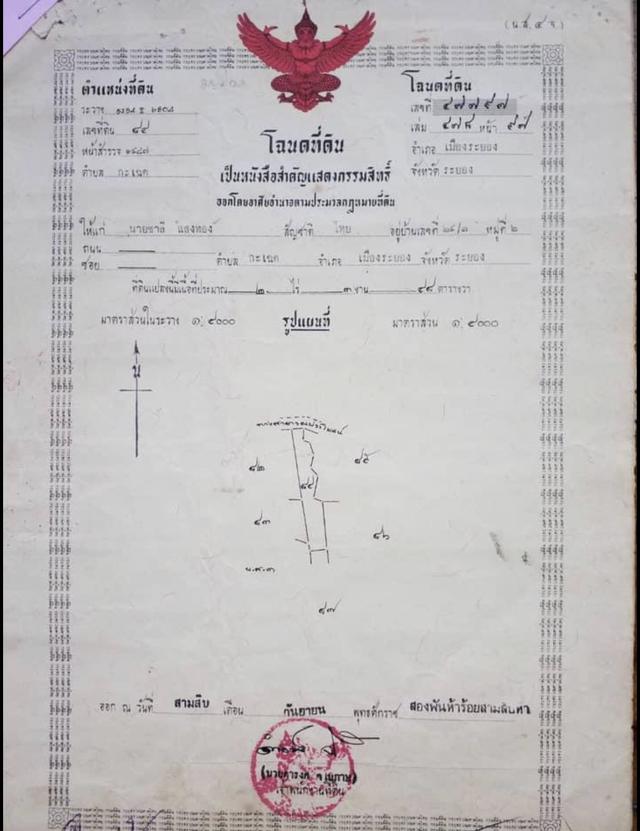 (น.ส. ๔ จ)
ตำแหน่งที่ดิน
ระวาง
เลขที่ดิน ๔๔
หน้าสำรวจ
ตำบล กะเฉด
โฉนดที่ดิน
เลขที่ ๔๗๗๙๗
เล่ม ๔๗๘ หน้า ๙๗
อำเภอ เมืองระยอง
จังหวัด ระยอง
โฉนดที่ดิน
เป็นหนังสือสำคัญแสดงกรรมสิทธิ์
ออกโดยอาศัยอำนาจตามประมวลกฎหมายที่ดิน
ให้แก่ นายชาลี แสงทอง สัญชาติ ไทย อยู่บ้านเลขที่ หมู่ที่ ๒
ถนน
ซอย ตำบล กะเฉด อำเภอ เมืองระยอง จังหวัด ระยอง
ที่ดินแปลงนี้มีเนื้อที่ประมาณ ๒ ไร่ ๓ งาน ๙๘ ตารางวา
มาตราส่วนในระวาง ๑: ๔๐๐๐ รูปแผนที่ มาตราส่วน ๑: ๔๐๐๐
น
ทางสาธารณประโยชน์
๔๒ ๔๕
๔๔
๔๓ ๔๖
น.ส.๓
๔๗
ออก ณ วันที่ สามสิบ เดือน กันยายน พุทธศักราช สองพันห้าร้อยสามสิบห้า
เจ้าพนักงานที่ดิน